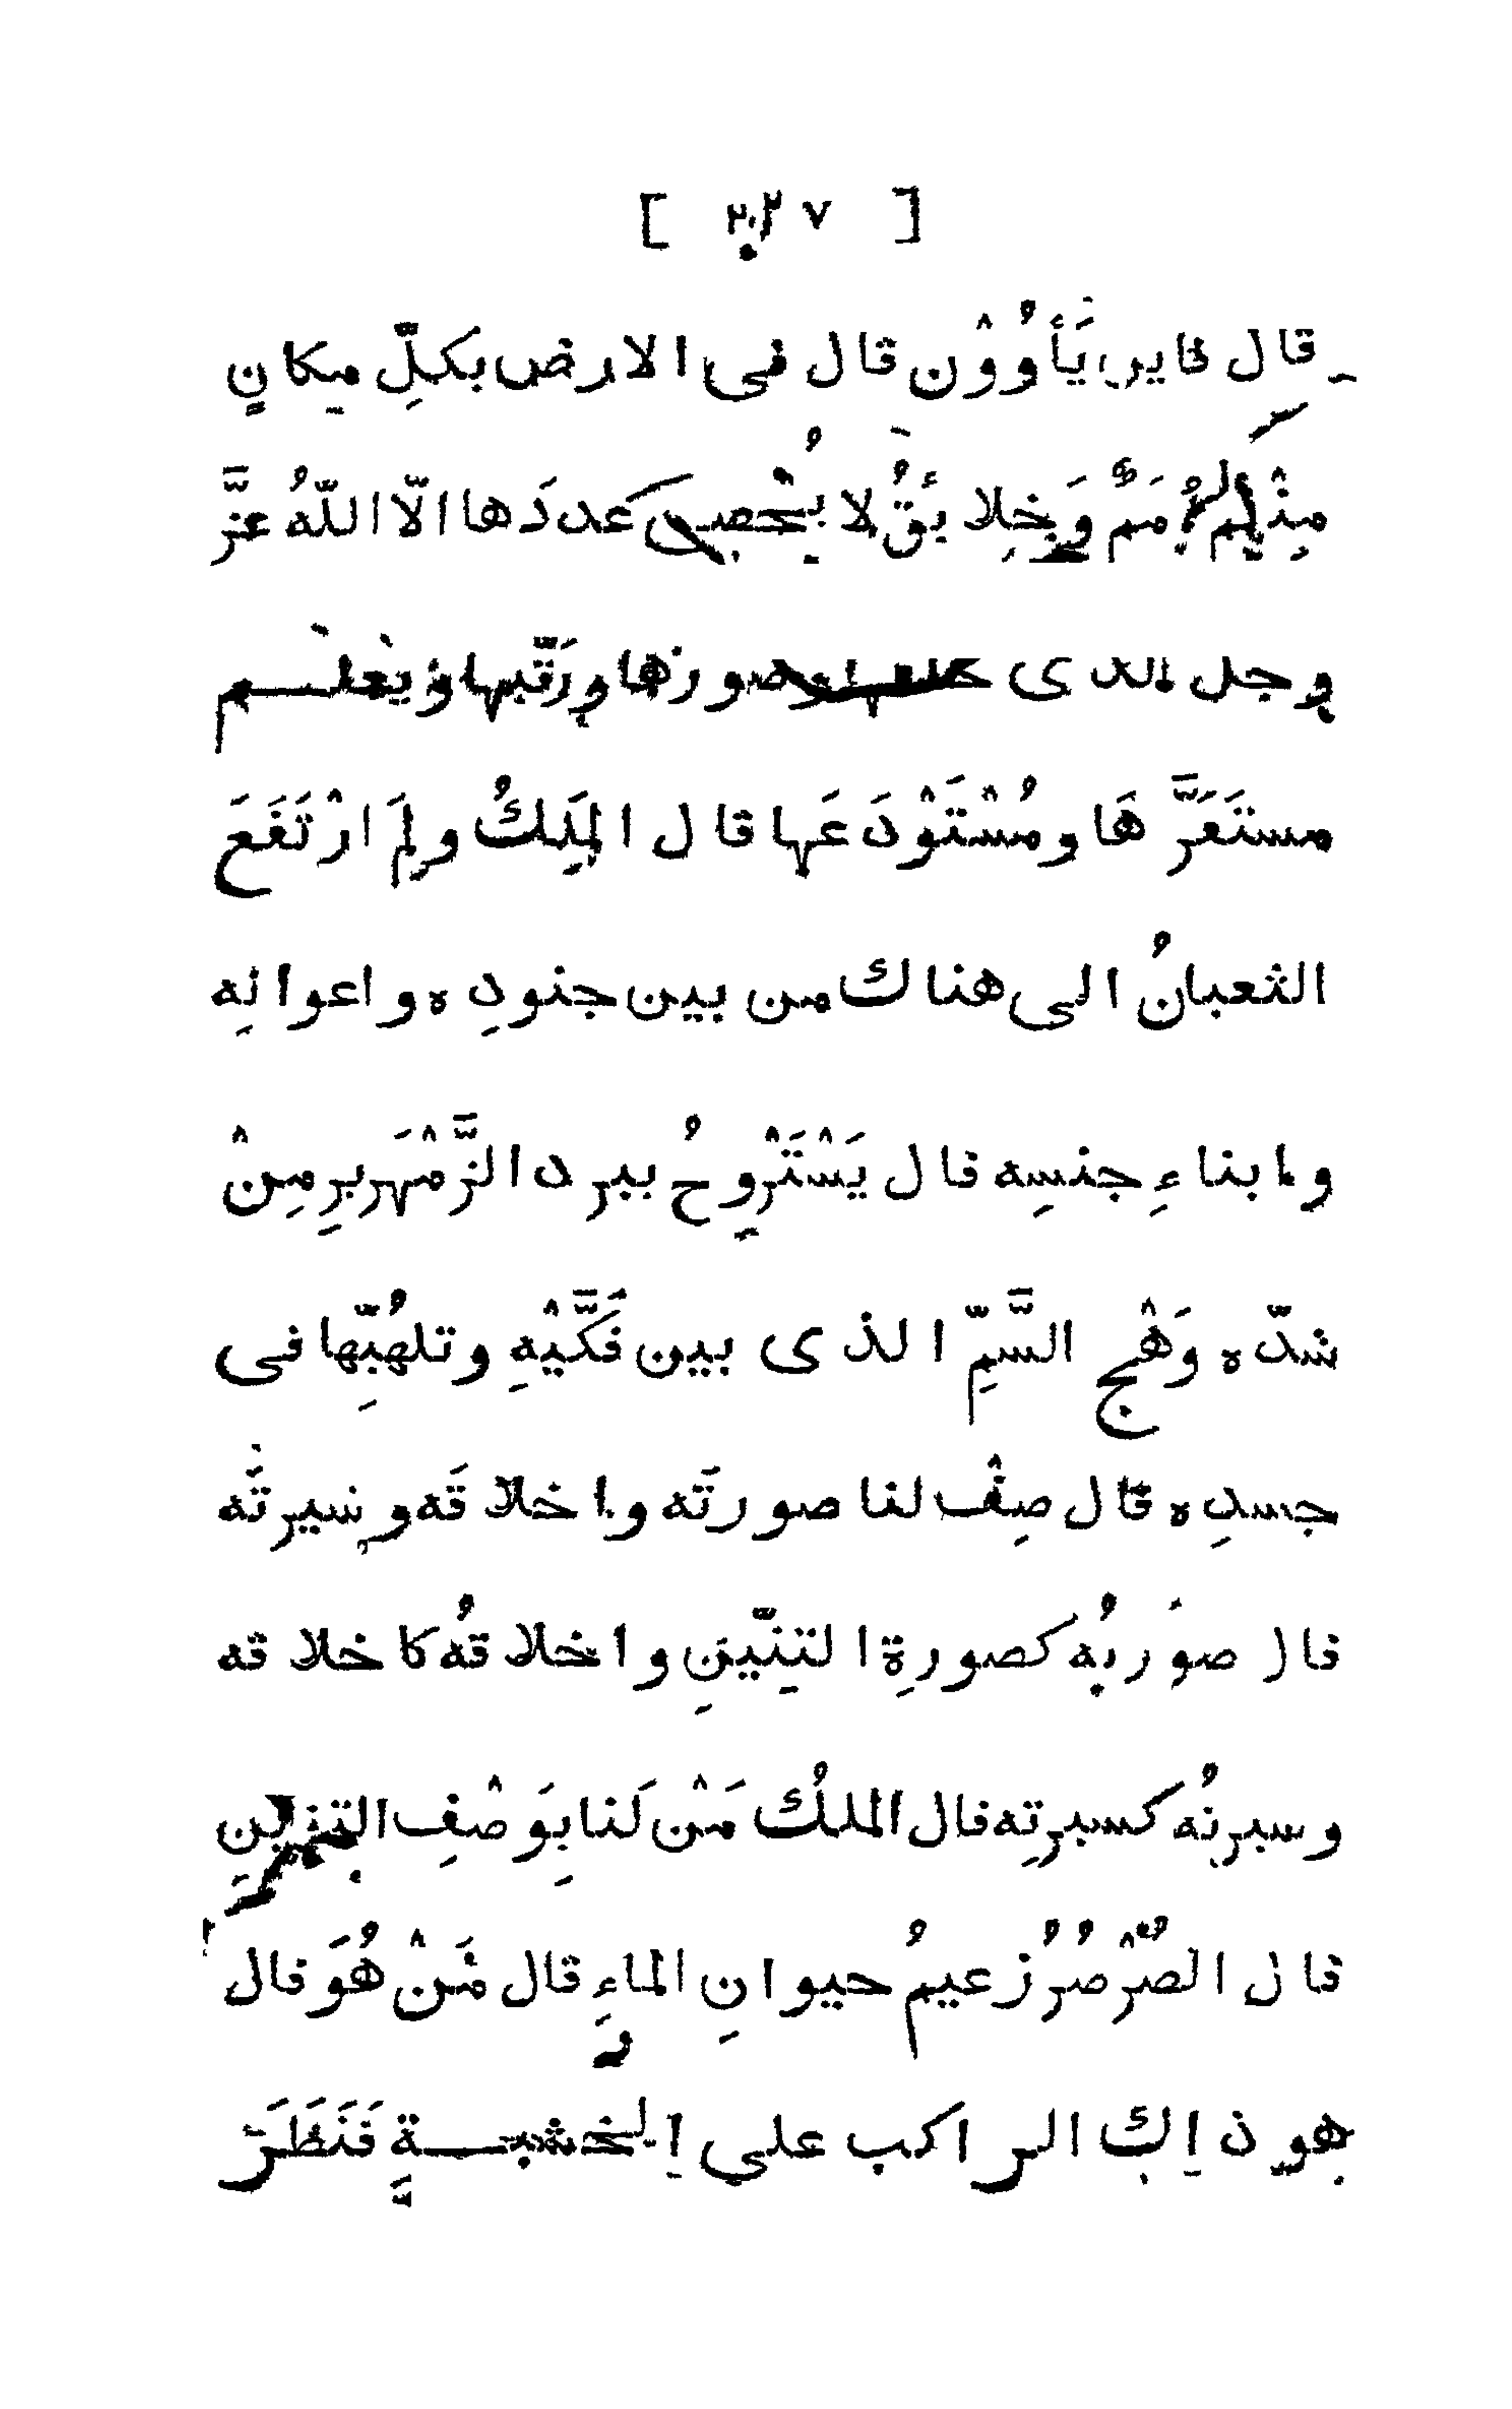 قال فاين يَأوُوْن قال فى الارض بكلِّ مكانٍ
منْهم اُمَمٌ وَخلائقُ لا يُحصى عددَها الّا اللّهُ عزَّ
وجل الذى خلقها وصورها ورَتّبها ويعلم
مستَقَرَّهَا ومُسْتَوْدَعَها قال المَلِكُ ولِمَ ارْتَفَعَ
الثعبانُ الى هناك من بين جنودِه واعوانِه
وابناءِ جنسِه قال يَسْتَرْوِحُ ببرد الزَّمْهَرِيرِ مِنْ
شدّه وَهْجِ السَّمِّ الذى بين فَكَّيْهِ وتلهُّبِها فى
جسدِه قال صِفْ لنا صورتَه واخلاقَه وسيرتَه
قال صورتُه كصورةِ التنّينِ واخلاقُه كاخلاقه
وسيرتُه كسيرتِه قال الملكُ مَنْ لَنا بِوَصْفِ التنينِ
قال الصُّرْصُرُ زعيمُ حيوانِ الماءِ قال مَنْ هُوَ قال
هو ذاك الراكب على الخشبةِ فَنَظَرَ